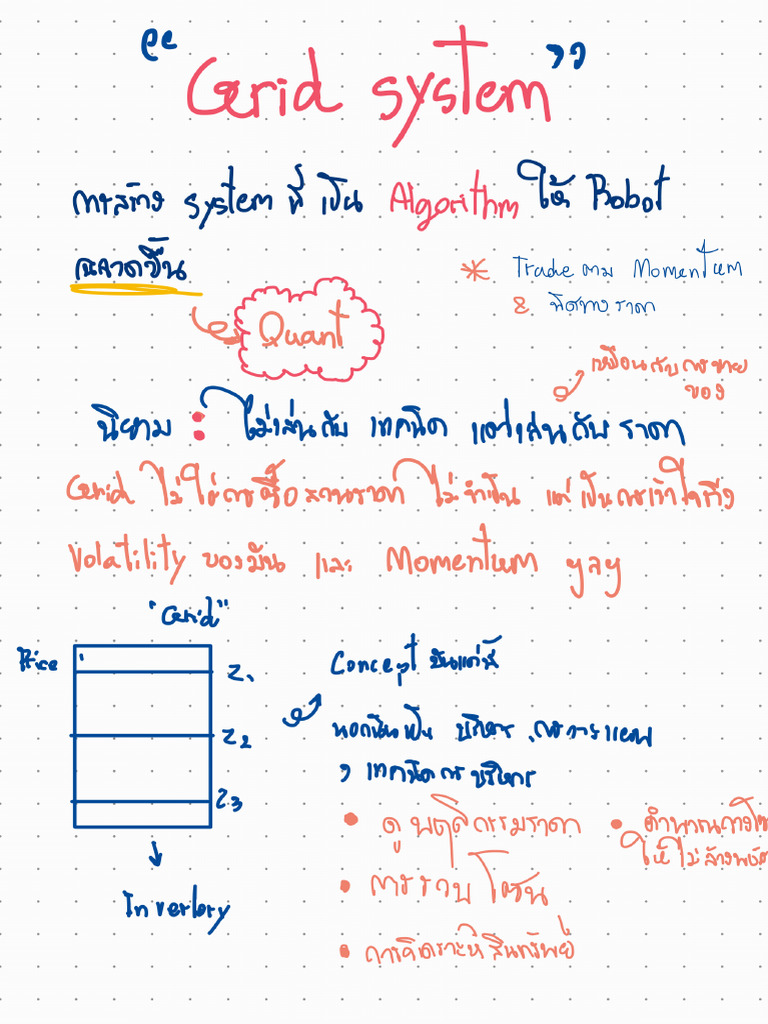 “Grid system”
การสร้าง system ที่ เป็น Algorithm ให้ Robot
ฉลาดขึ้น
* Trade ตาม Momentum
& ทิศทางราคา
Quant
เหมือนกับการขาย
ของ
นิยาม : ไม่เล่นกับ เทคนิค แต่เล่นกับ ราคา
Grid ไม่ใช่การซื้อ ราคา ไม่จำเป็น แต่ เป็นการเข้าใจถึง
Volatility ของมัน และ Momentum ๆลๆ
"Grid"
Price
Z1
Z2
Z3
Inventory
Concept มันแค่นี้
นอกนั้นเป็น บริหาร
, เทคนิคการบริหาร
• ดู พฤติกรรมราคา
• การรวบ โซน
• การวิเคราะห์ สินทรัพย์
• คำนวณการ
ให้ไม่ล้างพอร์ต